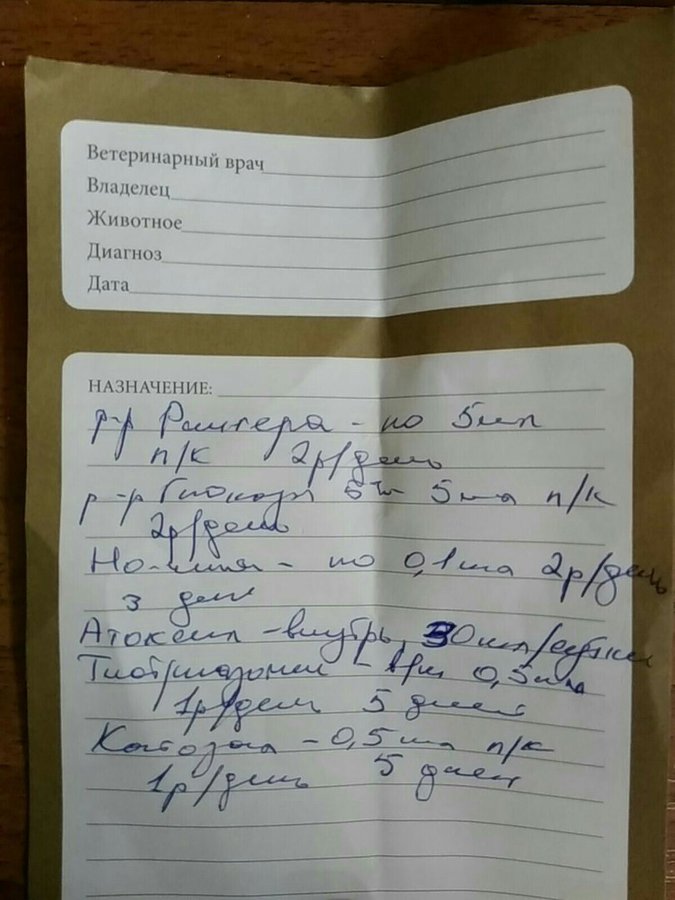 Ветеринарный врач
Владелец
Животное
Диагноз
Дата
НАЗНАЧЕНИЕ:
р-р Рингера - по 5мл
п/к 2р/день
р-р Глюкозы 5% 5мл п/к
2р/день
Но-шпа - по 0,1мл 2р/день
3 дня
Атоксил - внутрь, 30мл/сутки
Тиотриазолин - 0,5мл
1р/день 5 дней
Катозал - 0,5мл п/к
1р/день 5 дней